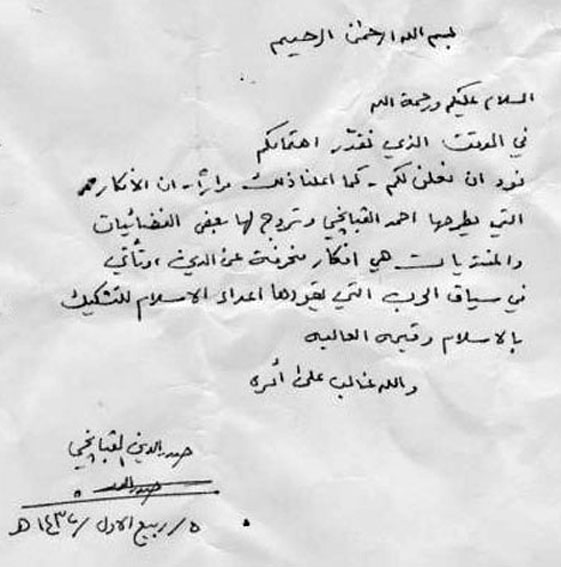 بسم الله الرحمن الرحيم
السلام عليكم ورحمة الله
في الوقت الذي نقدّر اهتمامكم
نود ان نعلن لكم - كما اعلنا ذلك مراراً - ان الأفكار
التي يطرحها احمد القبانچي وتروج لها بعض الفضائيات
والمنتديات هي افكار منحرفة عن الدين، وتأتي
في سياق الحرب التي يقودها اعداء الاسلام للتشكيك
بالاسلام وقيمه العاليه
والله غالب على أمره
صدر الدين القبانچي
٥/ربيع الاول/ هـ